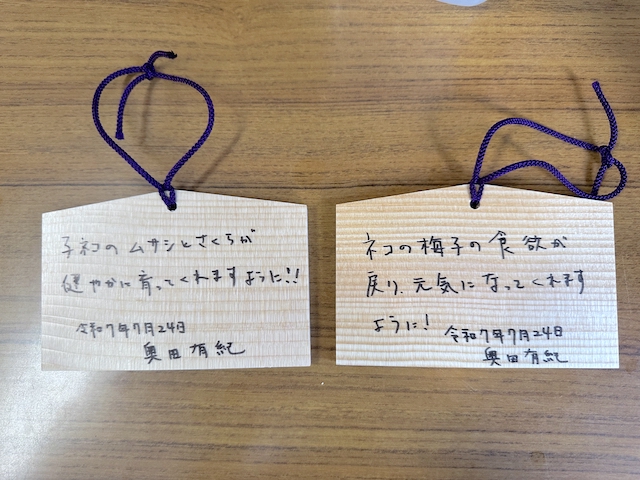 子ネコのムサシとさくらが
健やかに育ってくれますように!!
令和7年7月24日
奥田有紀
ネコの梅子の食欲が
戻り、元気になってくれます
ように!
令和7年7月24日
奥田有紀